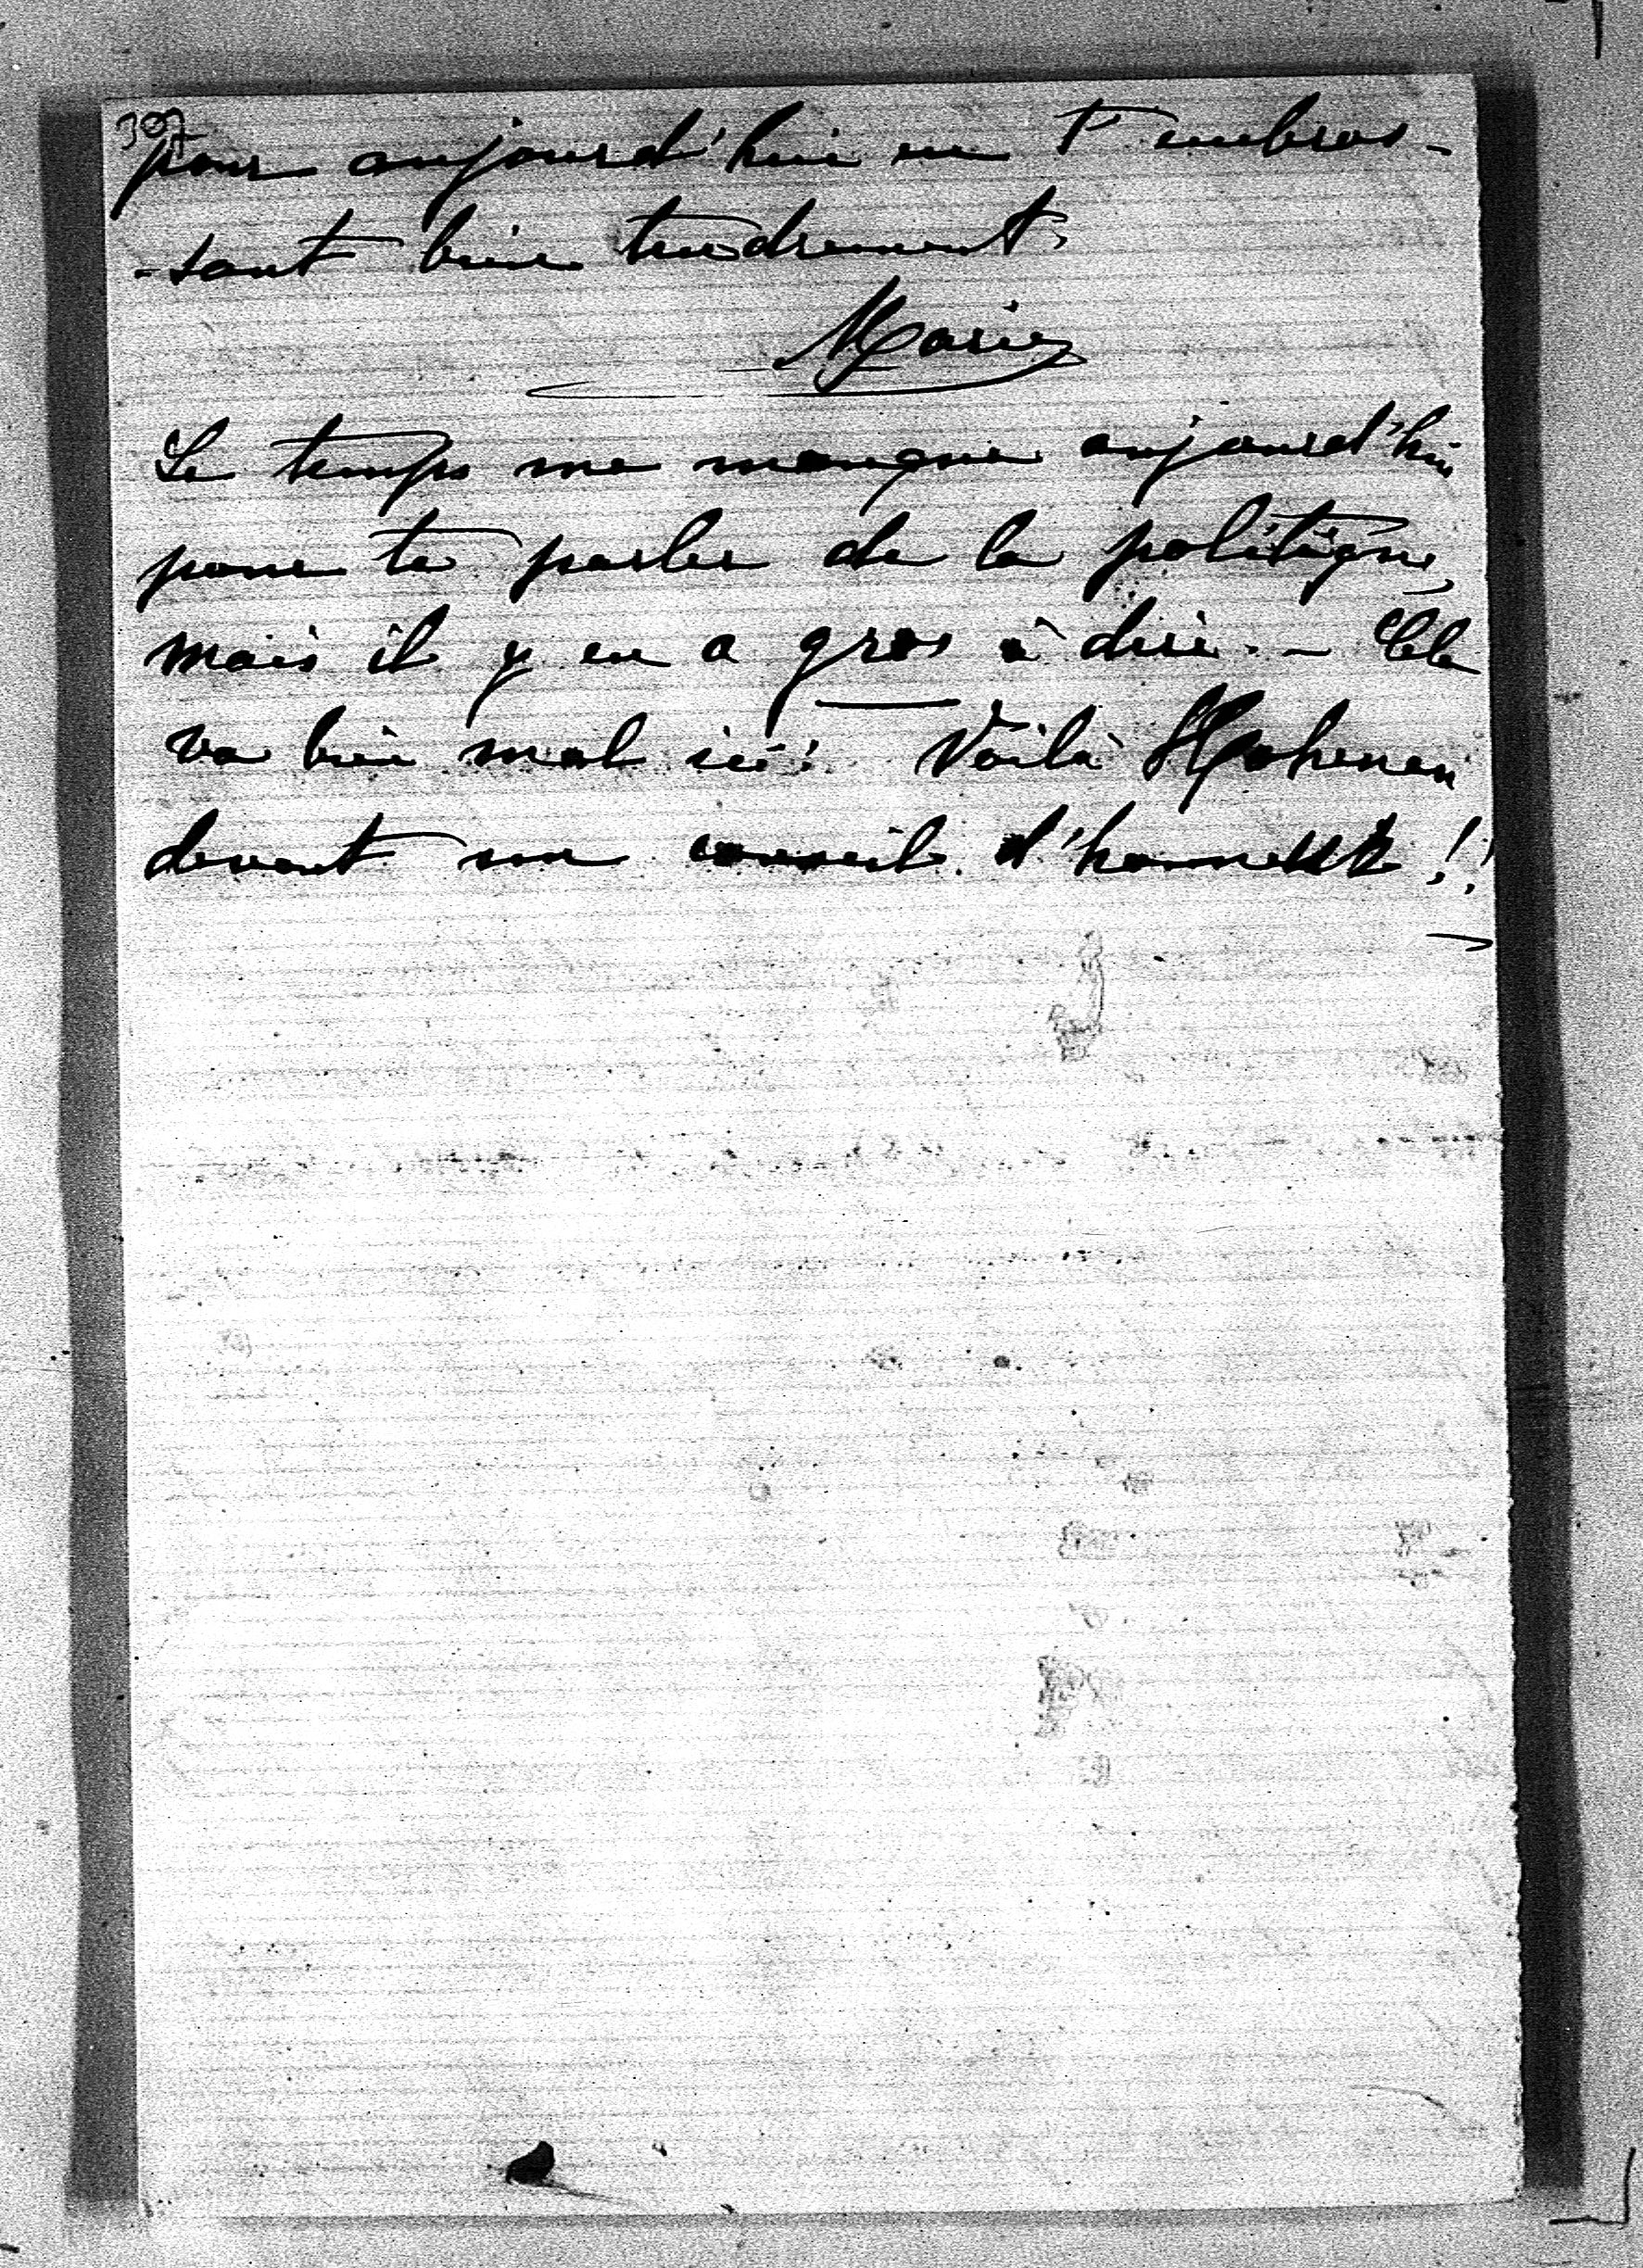 397
pour aujourd'hui en t'embras-
-sant bien tendrement.
Marie
Le temps me manque aujourd'hui
pour te parler de la politique,
mais il y en a gros à dire. - Cela
va bien mal ici! Voilà
devant un conseil d'honneur!!